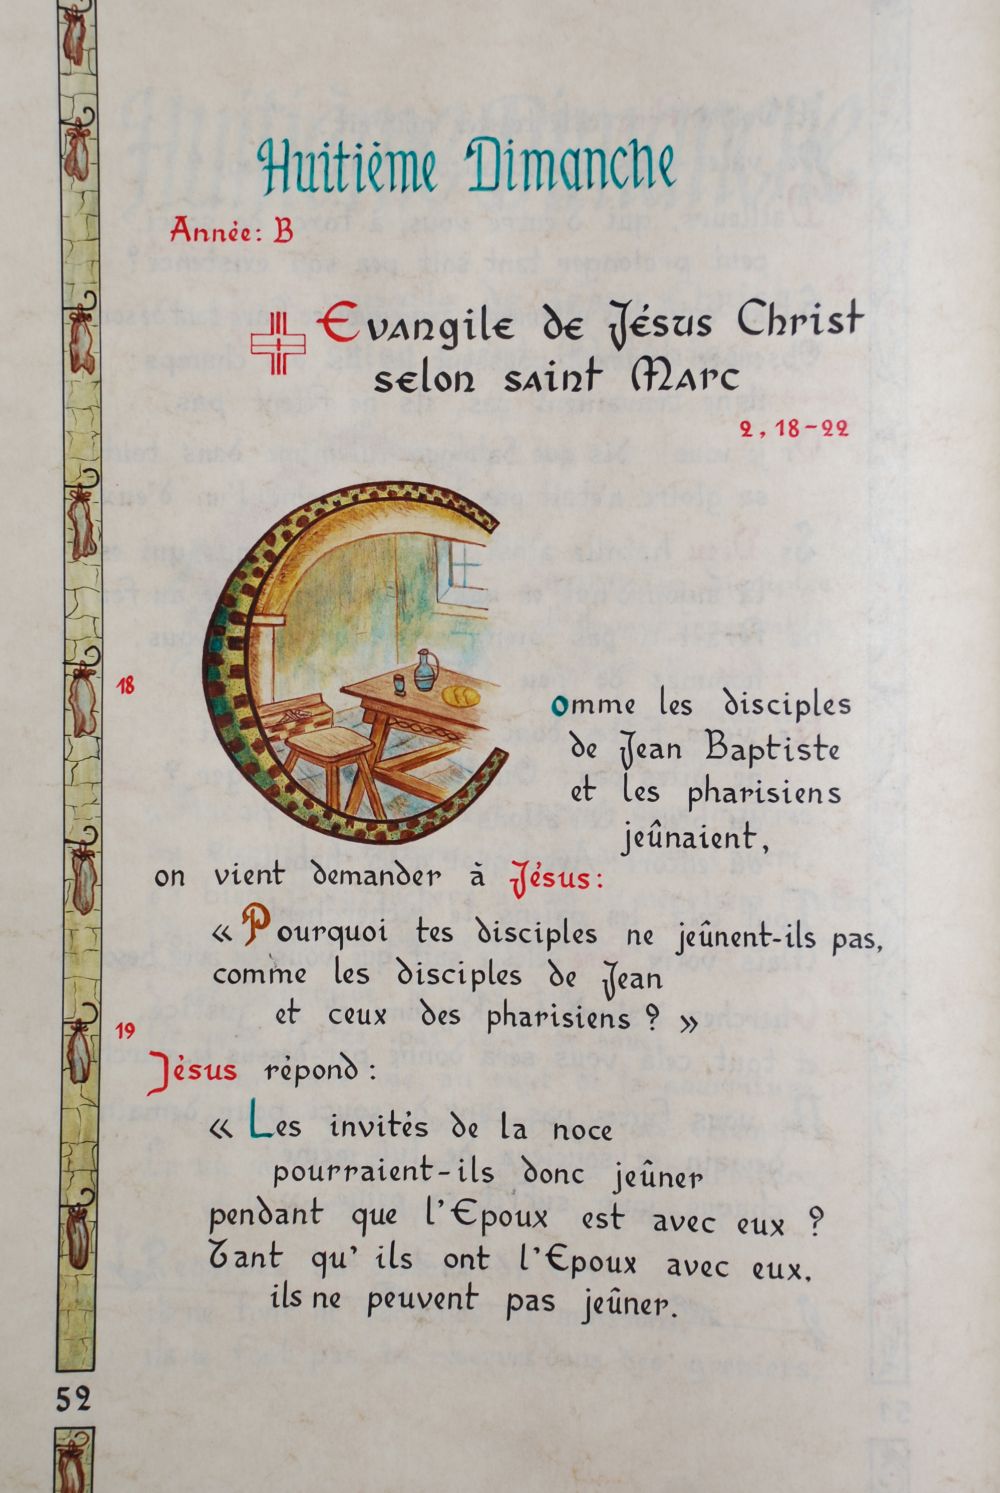 Huitième Dimanche
Année: B
Evangile de Jésus Christ
selon saint Marc
2, 18-22
18
Comme les disciples
de Jean Baptiste
et les pharisiens
jeûnaient,
on vient demander à Jésus:
« Pourquoi tes disciples ne jeûnent-ils pas,
comme les disciples de Jean
et ceux des pharisiens ? »
19
Jésus répond :
« Les invités de la noce
pourraient-ils donc jeûner
pendant que l'Epoux est avec eux ?
Tant qu' ils ont l'Epoux avec eux.
ils ne peuvent pas jeûner.
52